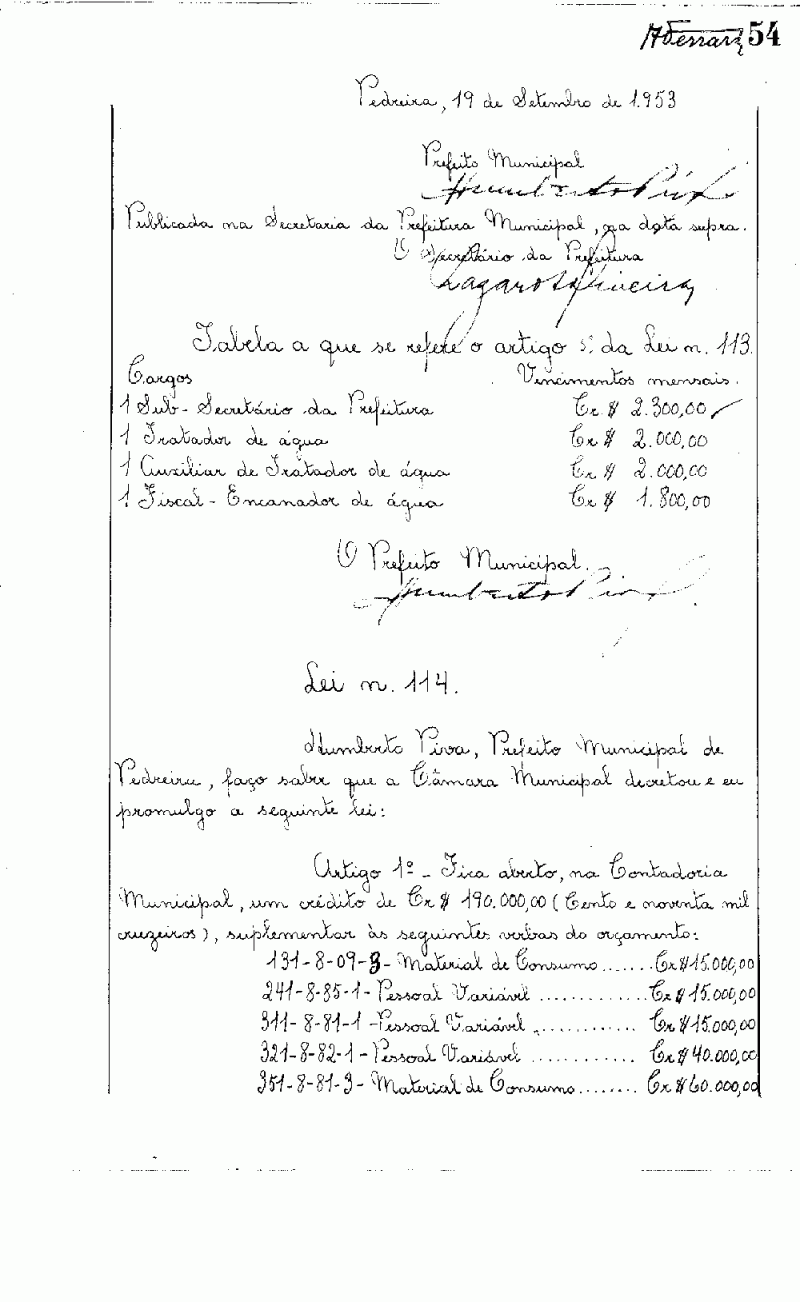 54
Pedreira, 19 de Setembro de 1.953
Prefeito Municipal
Humberto Piva
Publicada na Secretaria da Prefeitura Municipal, na data supra.
O Secretário da Prefeitura
Tabela a que se refere o artigo 5º da Lei n. 113.
Cargos Vencimentos mensais.
1 Sub-Secretário da Prefeitura Cr $ 2.300,00
1 Tratador de água Cr $ 2.000,00
1 Auxiliar de Tratador de água Cr $ 2.000,00
1 Fiscal-Encanador de água Cr $ 1.800,00
O Prefeito Municipal.
Humberto Piva
Lei n. 114.
Humberto Piva, Prefeito Municipal de
Pedreira, faço saber que a Câmara Municipal decretou e eu
promulgo a seguinte lei:
Artigo 1º - Fica aberto, na Contadoria
Municipal, um crédito de Cr $ 190.000,00 (Cento e noventa mil
cruzeiros), suplementar às seguintes verbas do orçamento:
131-8-09-3- Material de Consumo ....... Cr $ 15.000,00
241-8-85-1- Pessoal Variável ............. Cr $ 15.000,00
311-8-81-1 - Pessoal Variável ............. Cr $ 15.000,00
321-8-82-1- Pessoal Variável ............ Cr $ 40.000,00
351-8-81-3- Material de Consumo ........ Cr $ 60.000,00